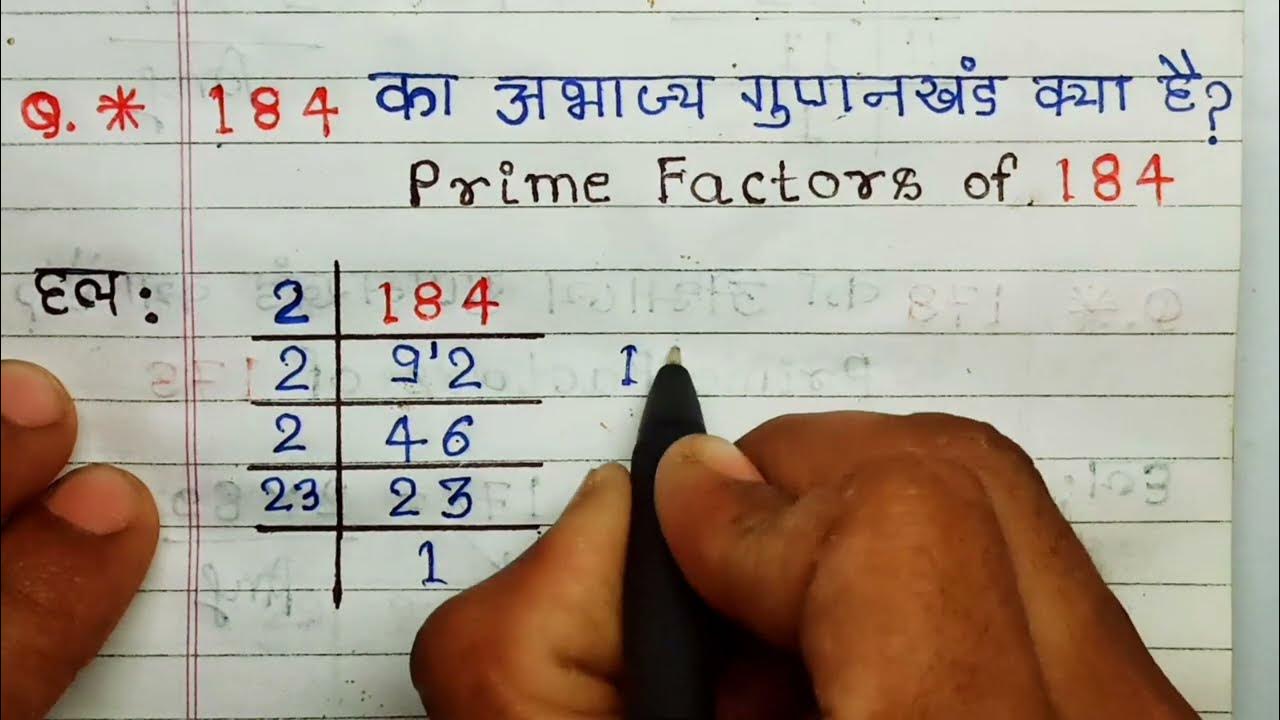 Q. * 184 का अभाज्य गुणनखंड क्या है?
Prime Factors of 184
हल:
2 | 184
2 | 9'2
2 | 46
23 | 23
1
1